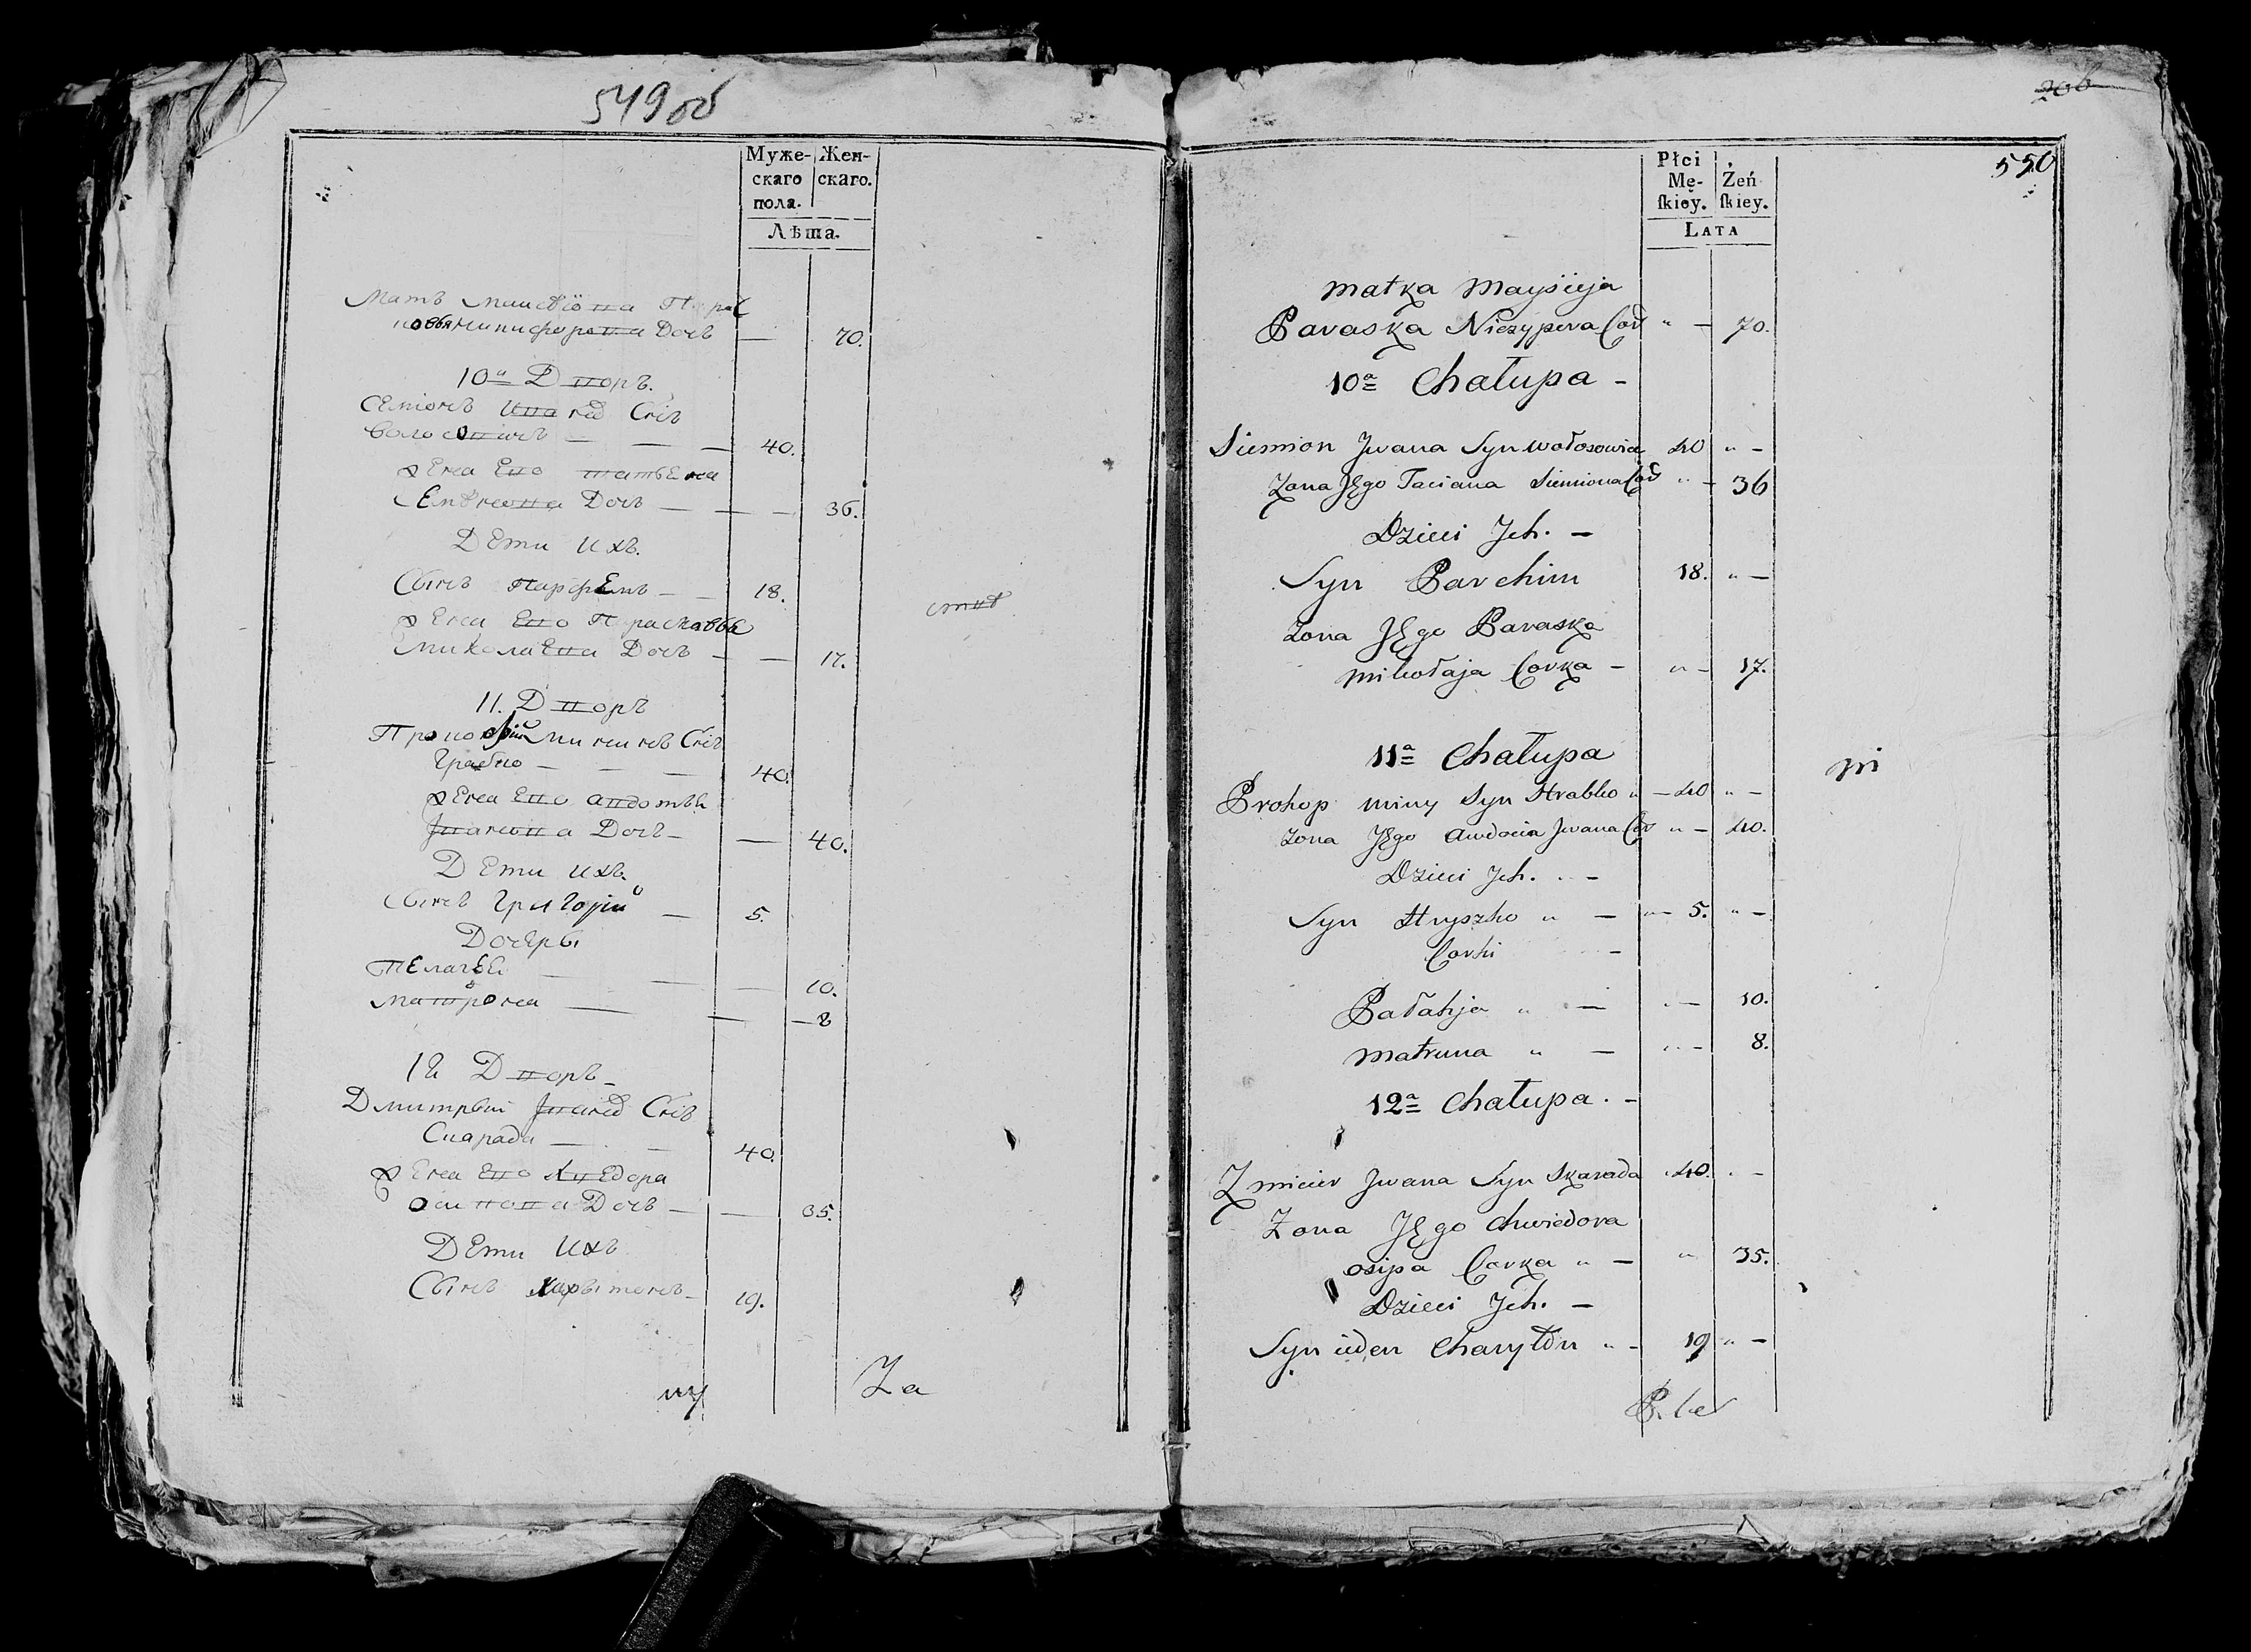 549об
Муже- Жен-
скаго скаго.
пола.
Лѣта.
Мать
Дочь — 70.
10ѣ Дворъ.
Семіонъ Ивана Снъ
Волосовичь — — — 40.
жена Его татьена
Семіонова Дочь — — — 36.
Дети ихъ.
Сынъ Парфемъ — — 18.
жена Его Парасковья
миколаева Дочь — — 17.
11. Дворъ
Прокофій Минина Снъ
Грабко — — — 40.
жена Его авдотья
Іванова Дочь — — 40.
Дети ихъ.
Сынъ Григорій — 5.
Дочеры
Пелагея — — — 10.
матрона — — — 8
12 Дворъ —
Дмитрый Івана Снъ
Скарада — — 40.
жена Его Хведора
осипова Дочь — — 35.
Дети ихъ
Сынъ Харытонъ — 19.
За
206
550
Płci Żeń
Mę- skiey.
skiey.
LATA
matka Maysieja
Paraska Niczypera Cor " — 70.
10a Chałupa —
Siemion Jwana Syn Wołosowicz 40 " —
Zona Jego Taciana Siemiona Cor " — 36
Dzieci Jch. —
Syn Parchim 18. " —
Zona Jego Paraska
Mikołaja Corka — " — 17.
11a Chałupa
Prokop miny Syn Hrabko " — 40 " —
Zona Jego Awdocia Jwana Cor " — 40.
Dzieci Jch. " —
Syn Hryszko " — " — 5. " —
Corki —
Pałahja " — " — 10.
Matruna " — " — 8.
12a Chałupa. —
Zmicier Jwana Syn Skarada 40. " —
Zona Jego Chwiedora
osipa Corka " — " 35.
Dzieci Jch. —
Syn ieden Charyton " — 19 " —